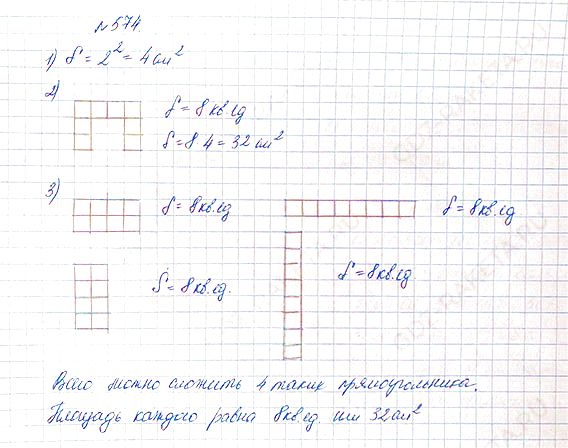 №574.
1) S = 2² = 4 см²
2)
S = 8 кв. ед
S = 8·4 = 32 см²
3)
S = 8 кв. ед
S = 8 кв. ед
S = 8 кв. ед.
S = 8 кв. ед.
Всего можно сложить 4 таких прямоугольника.
Площадь каждого равна 8 кв. ед. или 32 см²